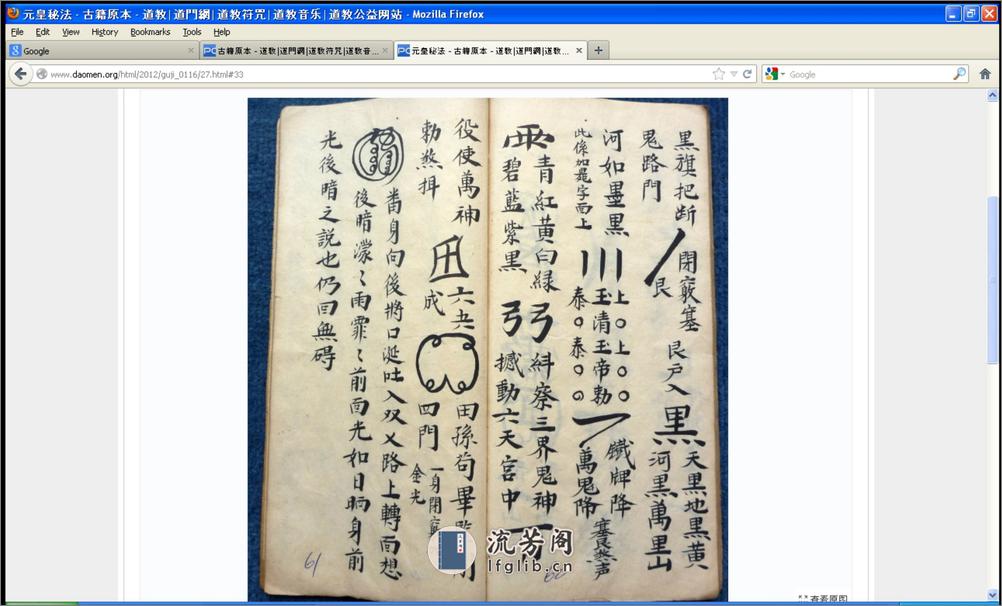 元皇秘法 - 古籍原本 - 道教|道門網|道教符咒|道教音乐|道教公益网站 - Mozilla Firefox
File Edit View History Bookmarks Tools Help
Google
古籍原本 - 道教|道門網|道教符咒|道教音...
元皇秘法 - 古籍原本 - 道教|道門網|道教...
www.daomen.org/html/2012/guji_0116/27.html#33
Google
黑旗把断
鬼路門
閉竅塞
艮
艮户入
黑
天黑地黑黄
河黑萬里山
河如墨黑
此係如是字面上
上〇上〇〇
玉清玉帝勅
泰〇泰〇〇
鐵牌降
萬鬼降
青紅黄白緑
碧藍紫黑
弓弓
糾察三界鬼神
撼動六天宮中
役使萬神
勅煞
成
田孫苟畢
四門
金光
畨身向後將口涎吐入双㐅路上轉面想
後暗濛〻雨霏〻前面光如日晒身前
光後暗之説也仍回無碍
61
流芳阁
lfglib.cn
查看原图